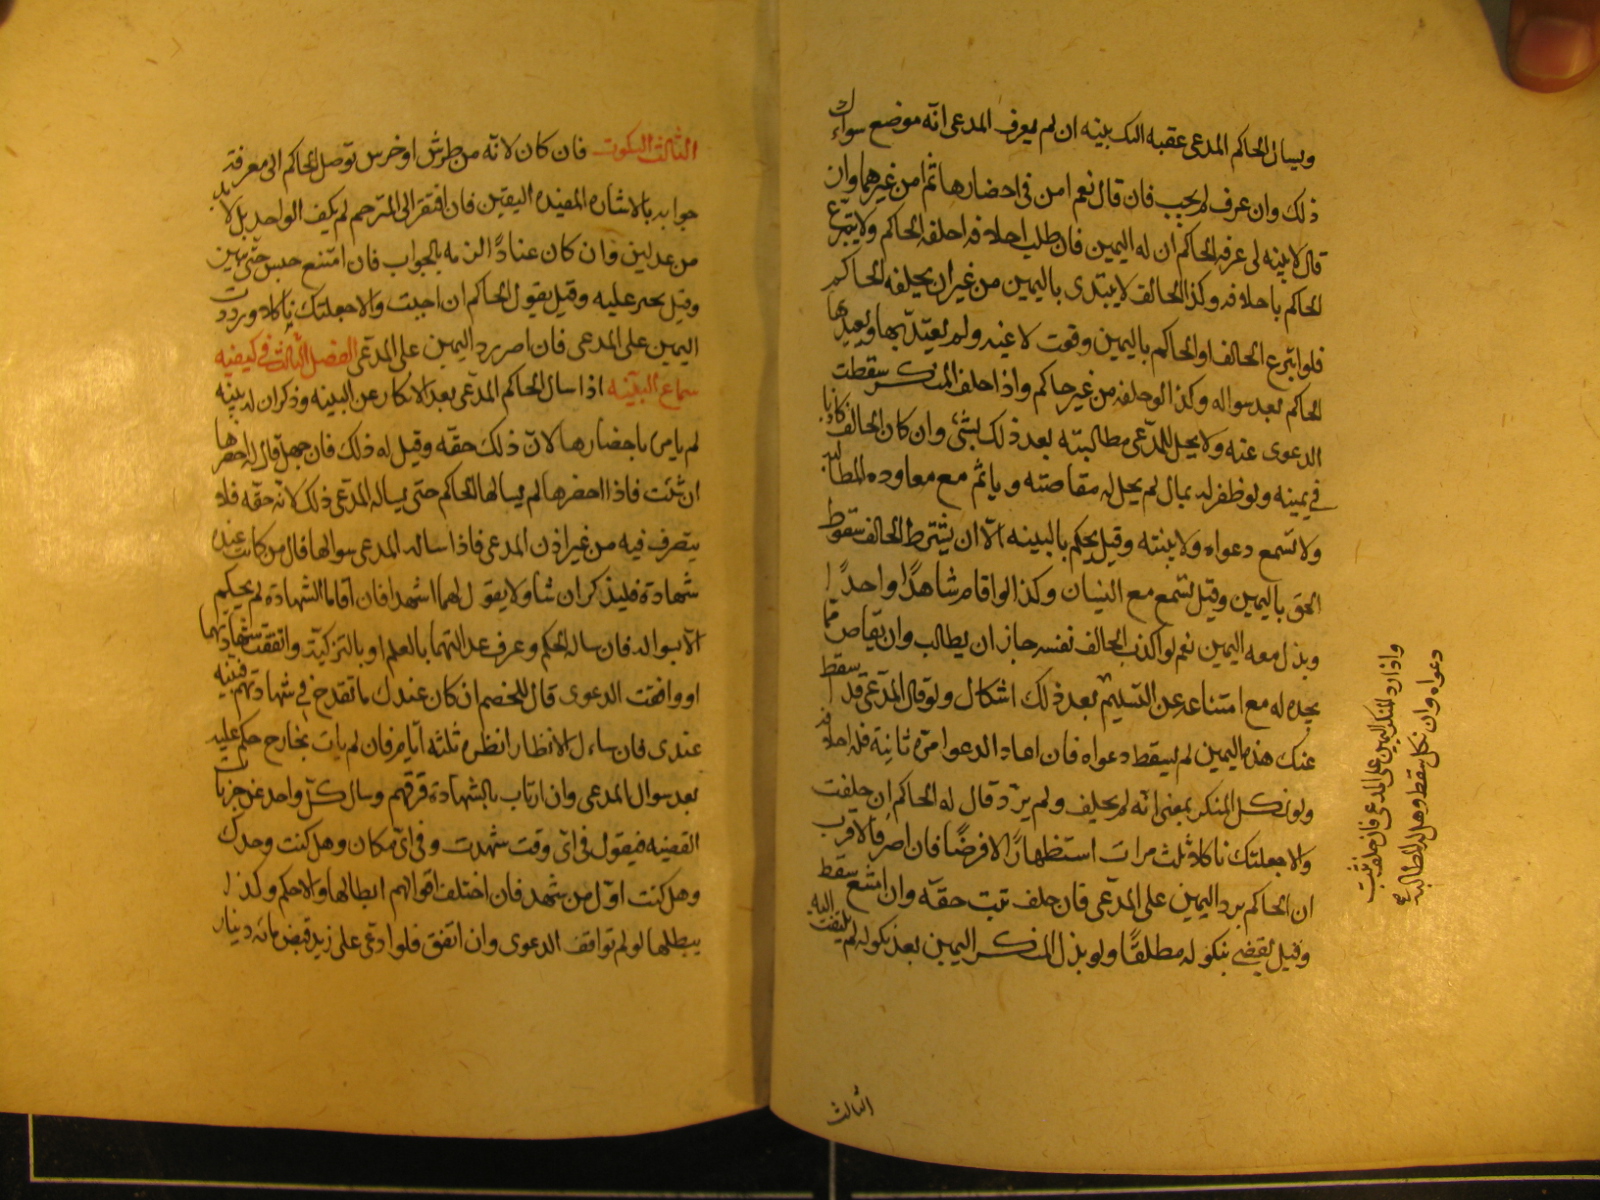 ويسال الحاكم المدعى عقبه الك بينه ان لم يعرف المدعى انه موضع سواك
ذلك وان عرف لم يجب فان قال نعم امن فى احضارها ثم امن غيرهما وان
قال لا بينه لى عرفه الحاكم ان له اليمين فان طلب احلافه احلفه الحاكم ولا يتبرع
الحاكم باحلافه وكذا الحالف لا يبتدى باليمين من غير ان يحلفه الحاكم
فلو تبرع الحالف او الحاكم باليمين وقعت لاغيه ولم يعتدّ بها ويعيدها
الحاكم بعد سواله وكذا لو حلفه من غير حاكم واذا حلف المنكر سقطت
الدعوى عنه ولا يحل للمدعى مطالبته بعد ذلك بشئ وان كان الحالف كاذبا
فى يمينه ولو ظفر له بمال لم يحل له مقاصته وياثم مع معاوده المطالبه
ولا تسمع دعواه ولا بينته وقيل يحكم بالبينه الّا ان يشترط الحالف سقوط
الحق باليمين وقيل تسمع مع النسيان وكذا لو اقام شاهدًا واحدًا
وبذل معه اليمين نعم لو اكذب الحالف نفسه جاز ان يطالب وان يقاص مما
يجده له مع امتناعه عن التسليم بعد ذلك اشكال ولو قال المدعى قد سقط
عنك هذه اليمين لم يسقط دعواه فان اعاد الدعوا مرّة ثانية فله احلافه
ولو نكل المنكر بمعنى انّه لم يحلف ولم يردّ قال له الحاكم ان حلفت
والا جعلتك ناكلا ثلث مرات استظهارًا لا فرضًا فان اصر فالاقرب
ان الحاكم يرد اليمين على المدّعى فان حلف ثبت حقه وان امتنع سقط
وقيل يقضى بنكوله مطلقًا ولو بذل المنكر اليمين بعد نكوله لم يلتفت اليه
واذا رد المنكر اليمين على المدعى فان حلف ثبت
دعواه وان نكل سقط وهل له المطالبة
الثالث
الثالث السكوت فان كان لانّه من طرش او خرس توصل الحاكم الى معرفة
جوابه بالاشاره المفيده اليقين فان افتقر الى المترجم لم يكف الواحد بل لابد
من عدلين وان كان عنادًا الزمه بالجواب فان امتنع حبس حتى يبين
وقيل يجبر عليه وقيل يقول الحاكم ان اجبت والا جعلتك ناكلا ورددت
اليمين على المدعى فان اصر رد اليمين على المدّعى الفصل الثالث فى كيفيه
سماع البينه اذا سال الحاكم المدّعى بعد الانكار عن البينه وذكر ان له بينه
لم يامره باحضارها لانّ ذلك حقه وقيل له ذلك فان جهل قال له احضرها
ان شئت فاذا احضرها لم يسالها الحاكم حتى يساله المدّعى ذلك لانه حقه فلا
يتصرف فيه من غير اذن المدعى فاذا ساله المدعى سوالها قال من كانت عنده
شهادة فليذكر ان شا ولا يقول لهما اشهدا فان اقاما الشهادة لم يحكم
الّا بسواله فان ساله الحكم وعرف عدالتهما بالعلم او بالتزكية واتفقت شهادتهما
او وافقت الدعوى قال للخصم ان كان عندك ما تقدح فى شهادتهم فبينه
عندى فان سال الانظار انظره ثلثه ايام فان لم يات بجارح حكم عليه
بعد سوال المدعى وان ارتاب بالشهادة فرقهم وسال كلّ واحد عن جزئيات
القضيه فيقول فى اىّ وقت شهدت وفى اىّ مكان وهل كنت وحدك
وهل كنت اوّل من شهد فان اختلف اقوالهم ابطالها والا حكم وكذا
يبطلها لو لم توافق الدعوى وان اتفق فلو ادعى على زيد قبض مائه دينار